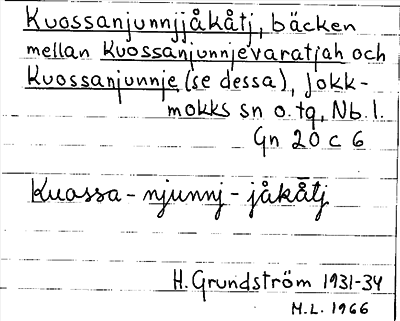 Kuossanjunnjjåkåtj, bäcken
mellan Kuossanjunnjevaratjah och
Kuossanjunnje (se dessa), Jokk-
mokks sn o. tg, Nb. l.
Gn 20 c 6
Kuossa - njunnj - jåkåtj
H. Grundström 1931-34
M.L. 1966